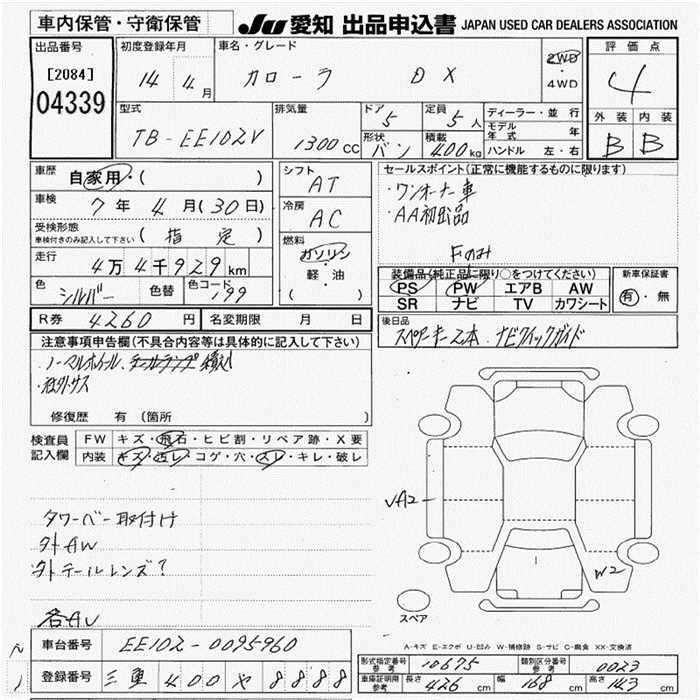 車内保管・守衛保管 JU 愛知 出品申込書 JAPAN USED CAR DEALERS ASSOCIATION
出品番号 初度登録年月 車名・グレード 2WD・4WD 評価点
[2084] 04339 14年4月 カローラ DX 4
外装 内装
B B
型式 排気量 ドア 5 定員 5人 ディーラー・並行
TB-EE102V 1300cc 形状 バン 積載 400kg モデル年式 年
ハンドル 左・右
車歴 自家用・( ) シフト AT
車検 7年4月(30日) 冷房 AC
受検形態 車検付きのみ記入して下さい (指定) 燃料 ガソリン・軽・油 ( )
走行 4万4千929km
色 シルバー 色替 色コード 199
R券 4260円 名変期限 月 日
セールスポイント(正常に機能するものに限ります)
・ワンオーナー車
・AA初出品
Fのみ
装備品(純正品に限り○をつけてください) 新車保証書
PS PW エアB AW 有・無
SR ナビ TV カワシート
後日品
スペアキー2本、ナビクイックガイド
注意事項申告欄(不具合内容等は具体的に記入して下さい)
・ノーマルホイル、テールランプ積込
・社外サス
修復歴 有(箇所
検査員記入欄 FW キズ・飛石・ヒビ割・リペア跡・X要
内装 キズ・汚レ・コゲ・穴・スレ・キレ・破レ
タワーバー取付け
外AW
外テールレンズ?
各AU
UA2
W2
スペア
A-キズ E-エクボ U-凹み W-補修跡 S-サビ C-腐食 XX-交換済
車台番号 EE102-0095960
登録番号 三重 400 や 8888
型式指定番号 参考 10675 類別区分番号 参考 0023
車庫証明用 参考 長さ 426cm 幅 168cm 高さ 143cm